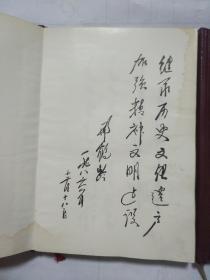 继承历史文化遗产
加强精神文明建设
一九八六年
月十八日